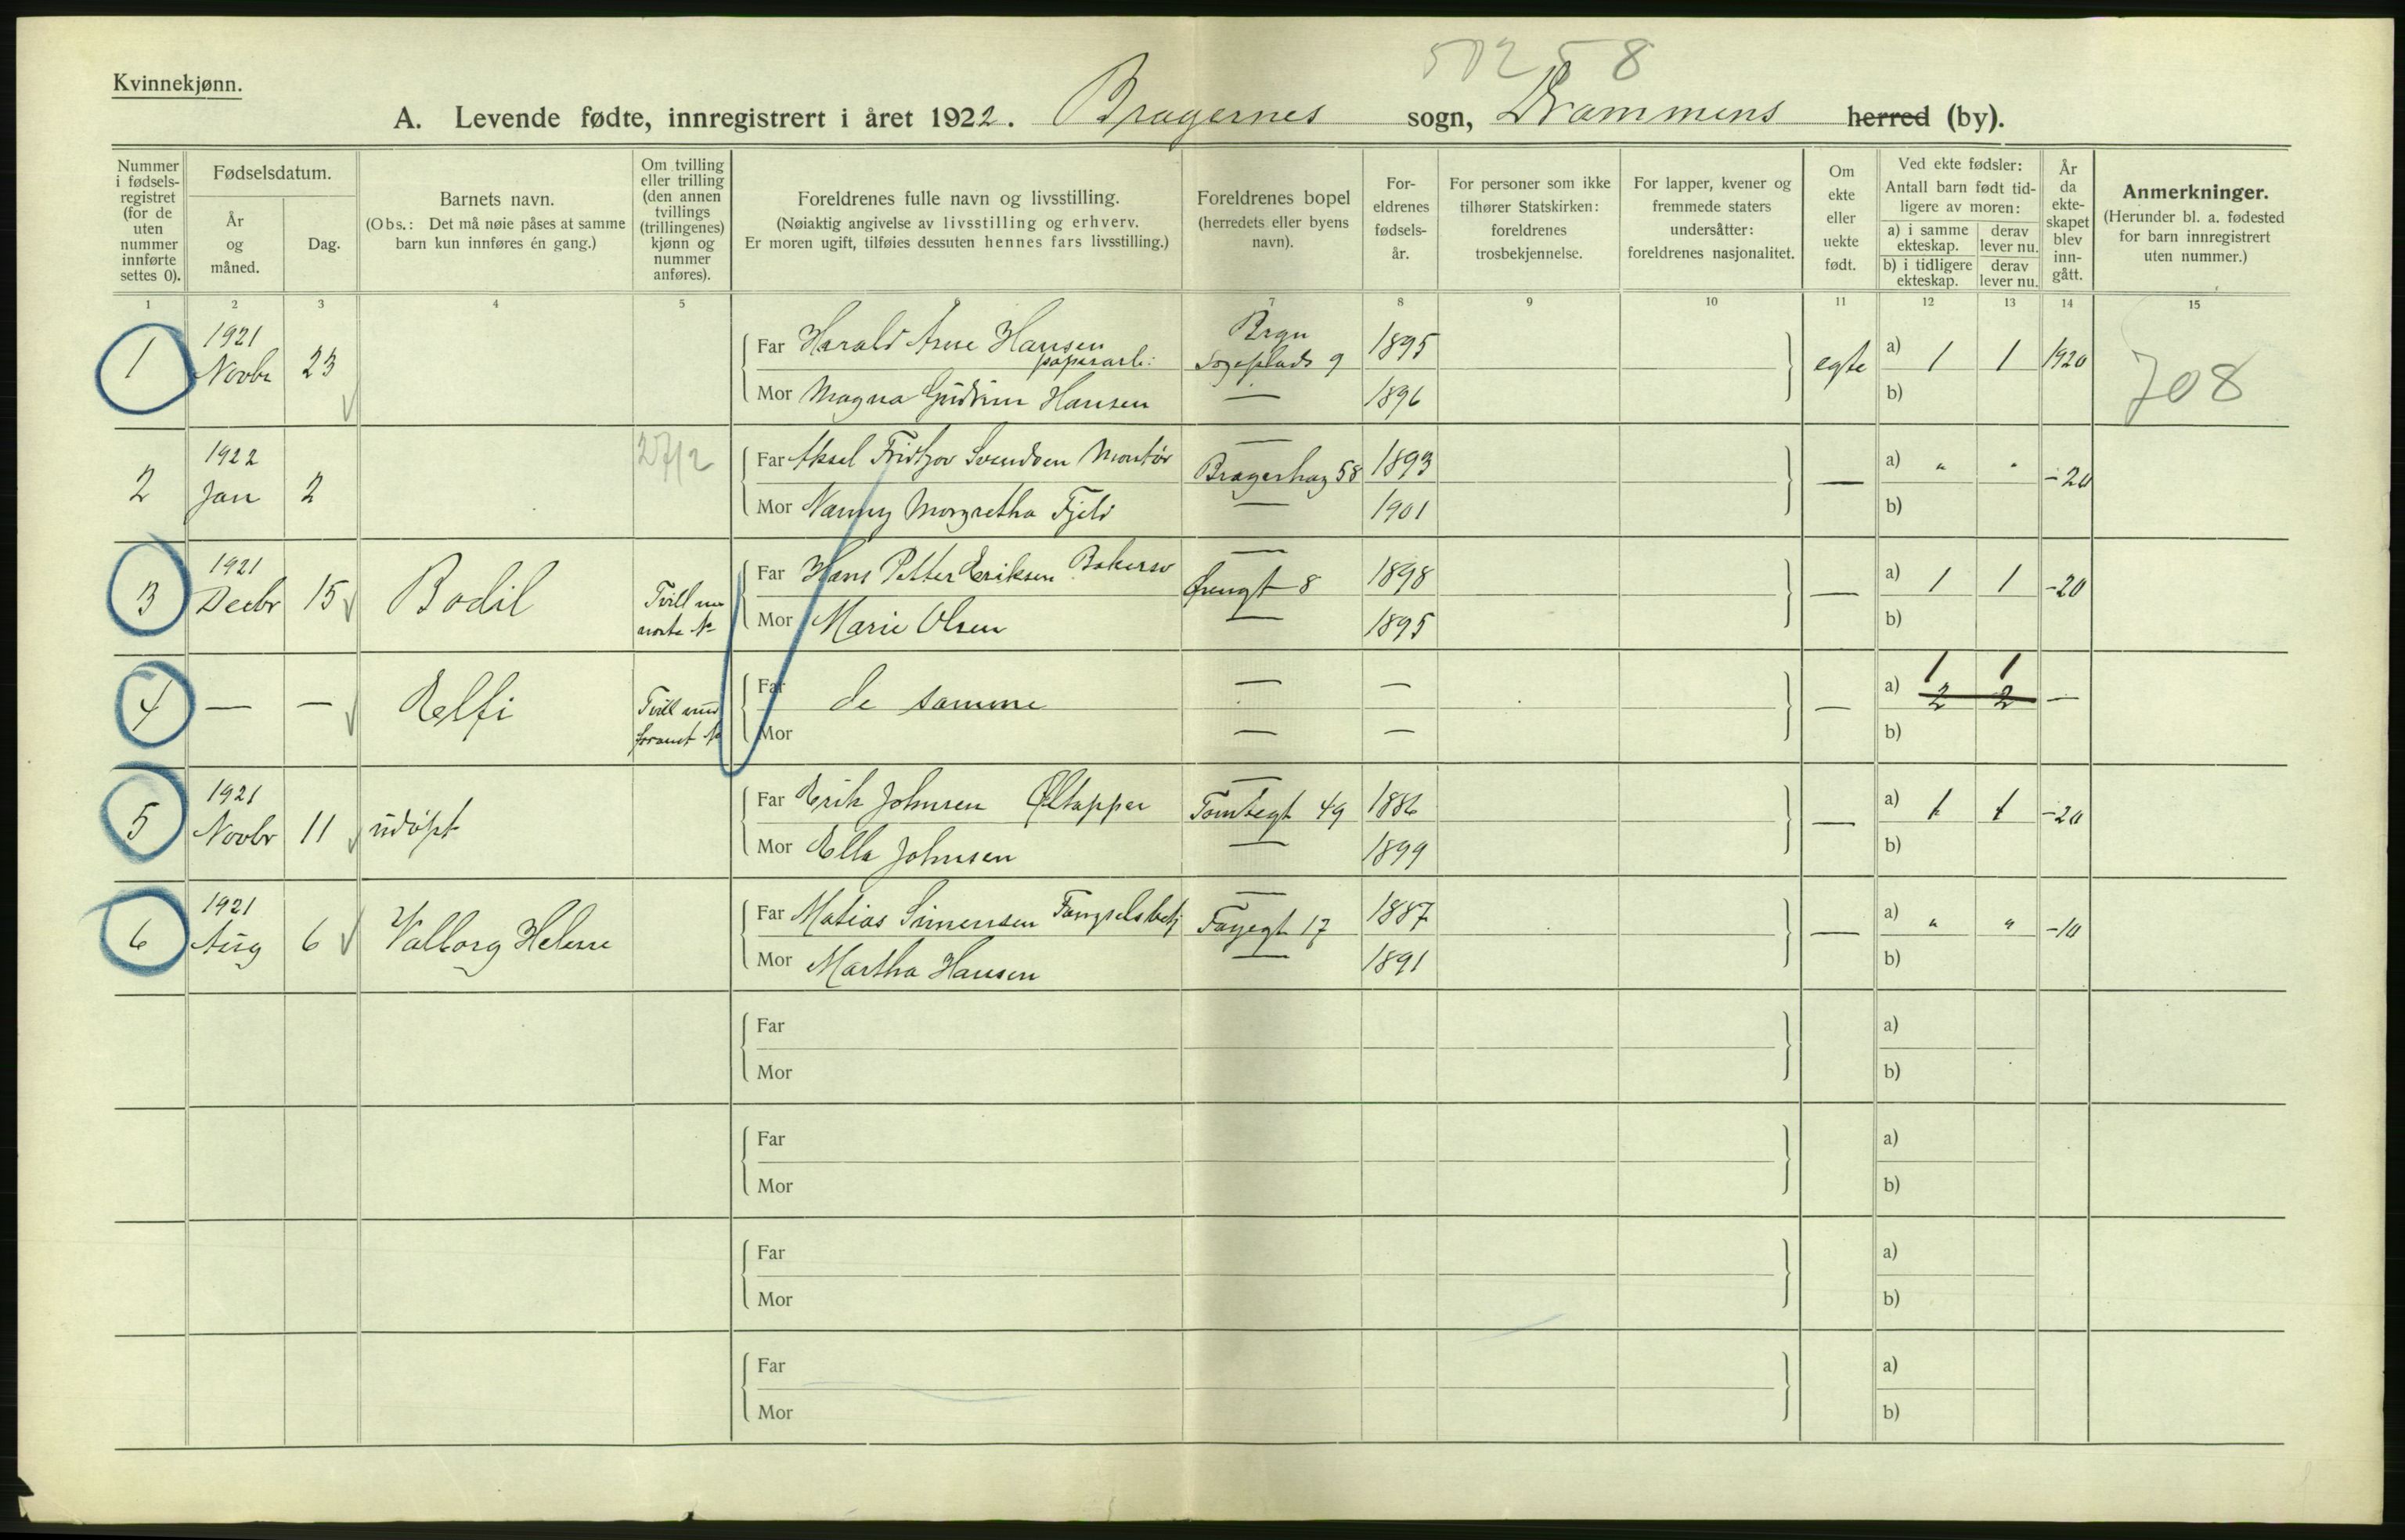 50258
Kvinnekjønn.
A. Levende fødte, innregistrert i året 1922. Bragernes sogn, Drammens herred (by).
Nummer i fødsels-registret (for de uten nummer innførte settes 0).
Fødselsdatum.
År og måned.
Dag.
Barnets navn.
(Obs.: Det må nøie påses at samme barn kun innføres én gang.)
Om tvilling eller trilling (den annen tvillings (trillingenes) kjønn og nummer anføres).
Foreldrenes fulle navn og livsstilling.
(Nøiaktig angivelse av livsstilling og erhverv.
Er moren ugift, tilføies dessuten hennes fars livsstilling.)
Foreldrenes bopel (herredets eller byens navn).
For-eldrenes fødsels-år.
For personer som ikke tilhører Statskirken: foreldrenes trosbekjennelse.
For lapper, kvener og fremmede staters undersåtter: foreldrenes nasjonalitet.
Om ekte eller uekte født.
Ved ekte fødsler:
Antall barn født tid-ligere av moren:
a) i samme ekteskap.
derav lever nu.
b) i tidligere ekteskap.
derav lever nu.
År da ekte-skapet blev inn-gått.
Anmerkninger.
(Herunder bl. a. fødested for barn innregistrert uten nummer.)
1 2 3 4 5 6 7 8 9 10 11 12 13 14 15
1 1921 Novbr 23 Far Harald Arne Hansen Brgn 1895 egte a) 1 1 1920 708
Mor Magna Gudrun Hansen — 1896 b)
2 1922 Jan 2 27/12 Far Aksel Fridtjov Svendsen Montør — Bragerhag 58 1893 — a) " " -20
Mor Nanny Margretha Fjeld — 1901 b)
3 1921 Decbr 15 Bodil Tvill Far Hans Petter Eriksen — 8 1898 — a) 1 1 -20
Mor Marie Olsen — 1895 b)
4 — — Elfi Tvill Far de samme — — — a) 1 1 2 2 —
Mor — — b)
5 1921 Novbr 11 udøpt Far Erik Johnsen Øltapper — Tomtegt 49 1886 — a) 1 1 -20
Mor Ella Johnsen — 1899 b)
6 1921 Aug 6 Valborg Helene Far Matias Simensen Fængselsbetj — 17 1887 — a) " " -10
Mor Martha Hansen — 1891 b)
Far a)
Mor b)
Far a)
Mor b)
Far a)
Mor b)
Far a)
Mor b)